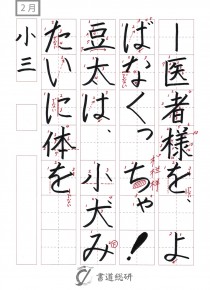 2月
ー医者様を、よ
ばなくっちゃ！
豆太は、小犬み
たいに体を
小三
書道総研